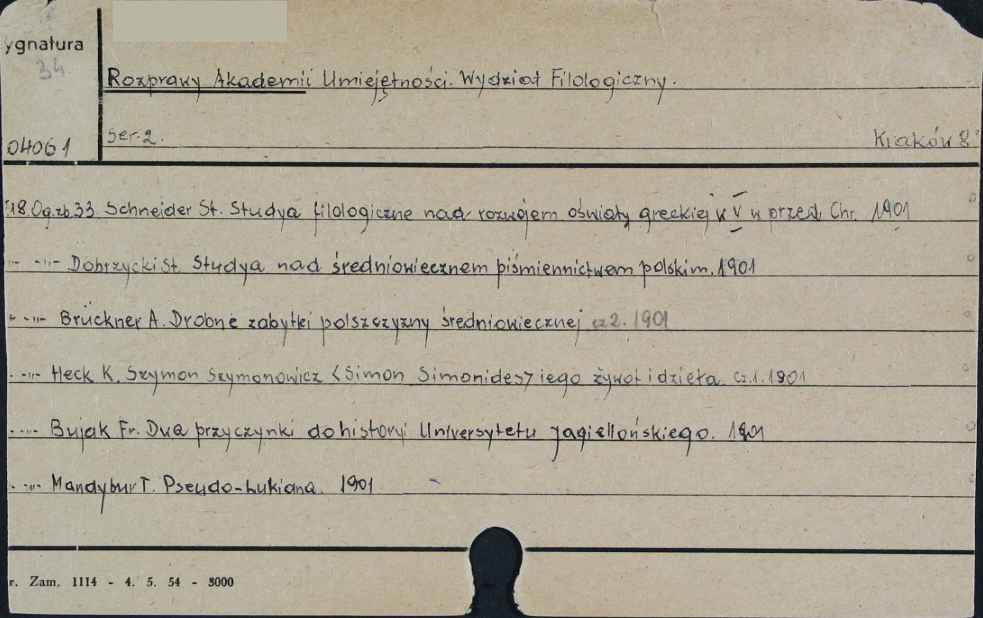 ygnatura
34
Rozprawy Akademii Umiejętności. Wydział Filologiczny.
04061
Ser.2.
Kraków 8°
18. Og.zb.33 Schneider St. Studya filologiczne nad rozwojem oświaty greckiej w V w przed Chr. 1901
-"- Dobrzycki St. Studya nad średniowiecznem piśmiennictwem polskim. 1901
-"- Brückner A. Drobne zabytki polszczyzny średniowiecznej cz 2. 1901
-"- Heck K. Szymon Szymonowicz <Simon Simonides> iego żywot i dzieła. Cz.1. 1901
-"- Bujak Fr. Dwa przyczynki do historyi Uniwersytetu Jagiellońskiego. 1901
-"- Mandybur T. Pseudo-Lukiana. 1901
r. Zam. 1114 - 4. 5. 54 - 3000